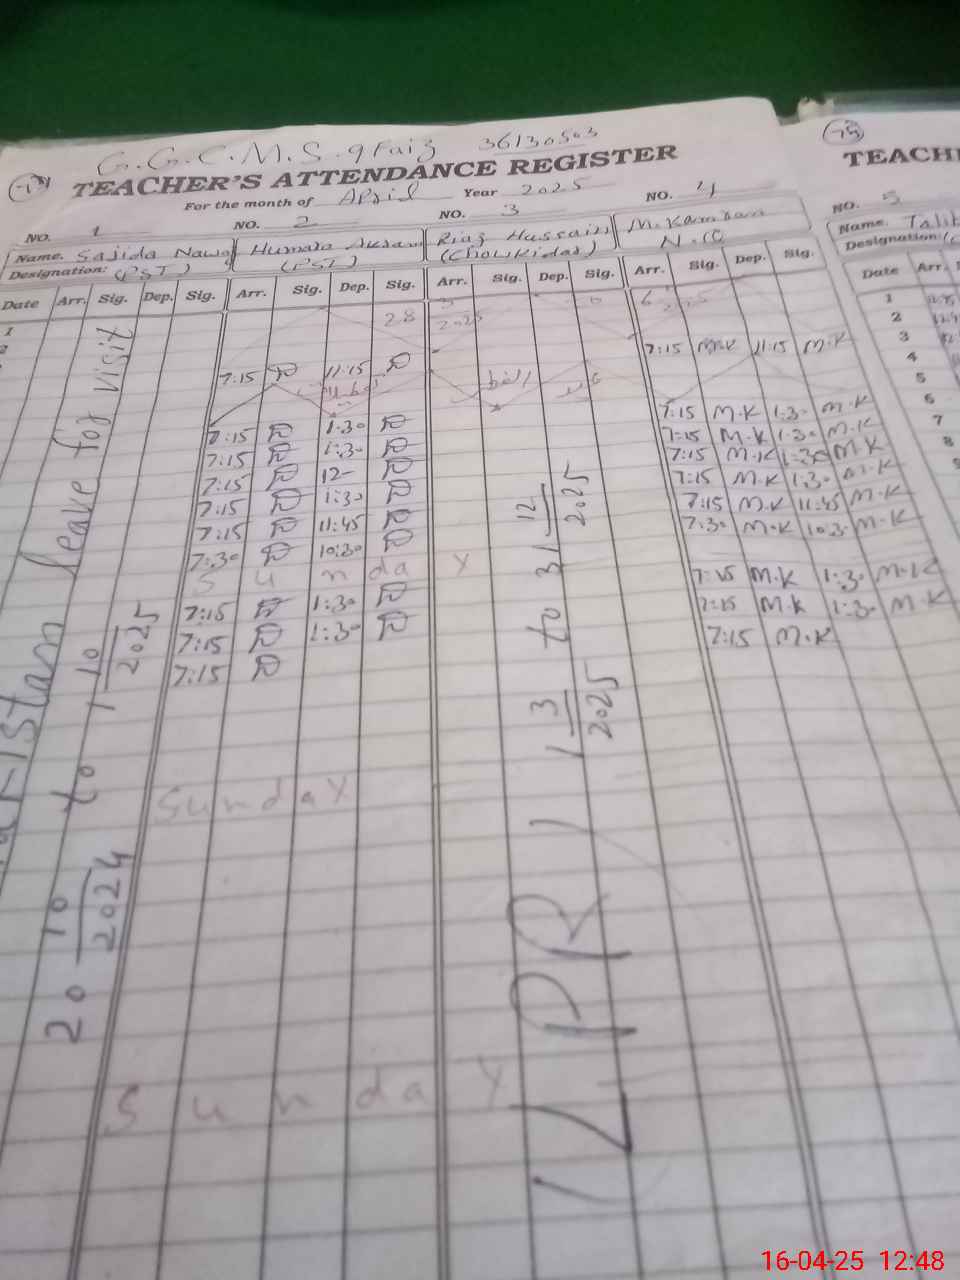 G.G.C.M.S. 9 Faiz 36130503
TEACHER'S ATTENDANCE REGISTER
For the month of April Year 2025
NO. 1 NO. 2 NO. 3 NO. 4
Name. Sajida Nawa Humara Akram Riaz Hussain M. Kamran
Designation: (PST) (PST) (Chowkidar) N.Q
Date Arr. Sig. Dep. Sig. Arr. Sig. Dep. Sig. Arr. Sig. Dep. Sig. Arr. Sig. Dep. Sig.
1
28 2025
7:15 11:15 7:15 M.K 11:15 M.K
7:15 1:30 7:15 M.K 1:30 M.K
7:15 1:30 7:15 M.K 1:30 M.K
7:15 12- 7:15 M.K 1:30 M.K
7:15 1:30 7:15 M.K 1:30 M.K
7:15 11:45 7:15 M.K 11:45 M.K
7:30 10:30 7:30 M.K 10:30 M.K
Sunday
7:15 1:30 7:15 M.K 1:30 M.K
7:15 1:30 7:15 M.K 1:30 M.K
7:15 7:15 M.K
Sunday
Sunday
leave for visit
20 10/2024 to 1 10/2025
LPR 1 3/2025 to 31 12/2025
TEACH
NO. 5
Name.
Designation:
Date Arr.
1
2
3
4
5
6
7
8
16-04-25 12:48